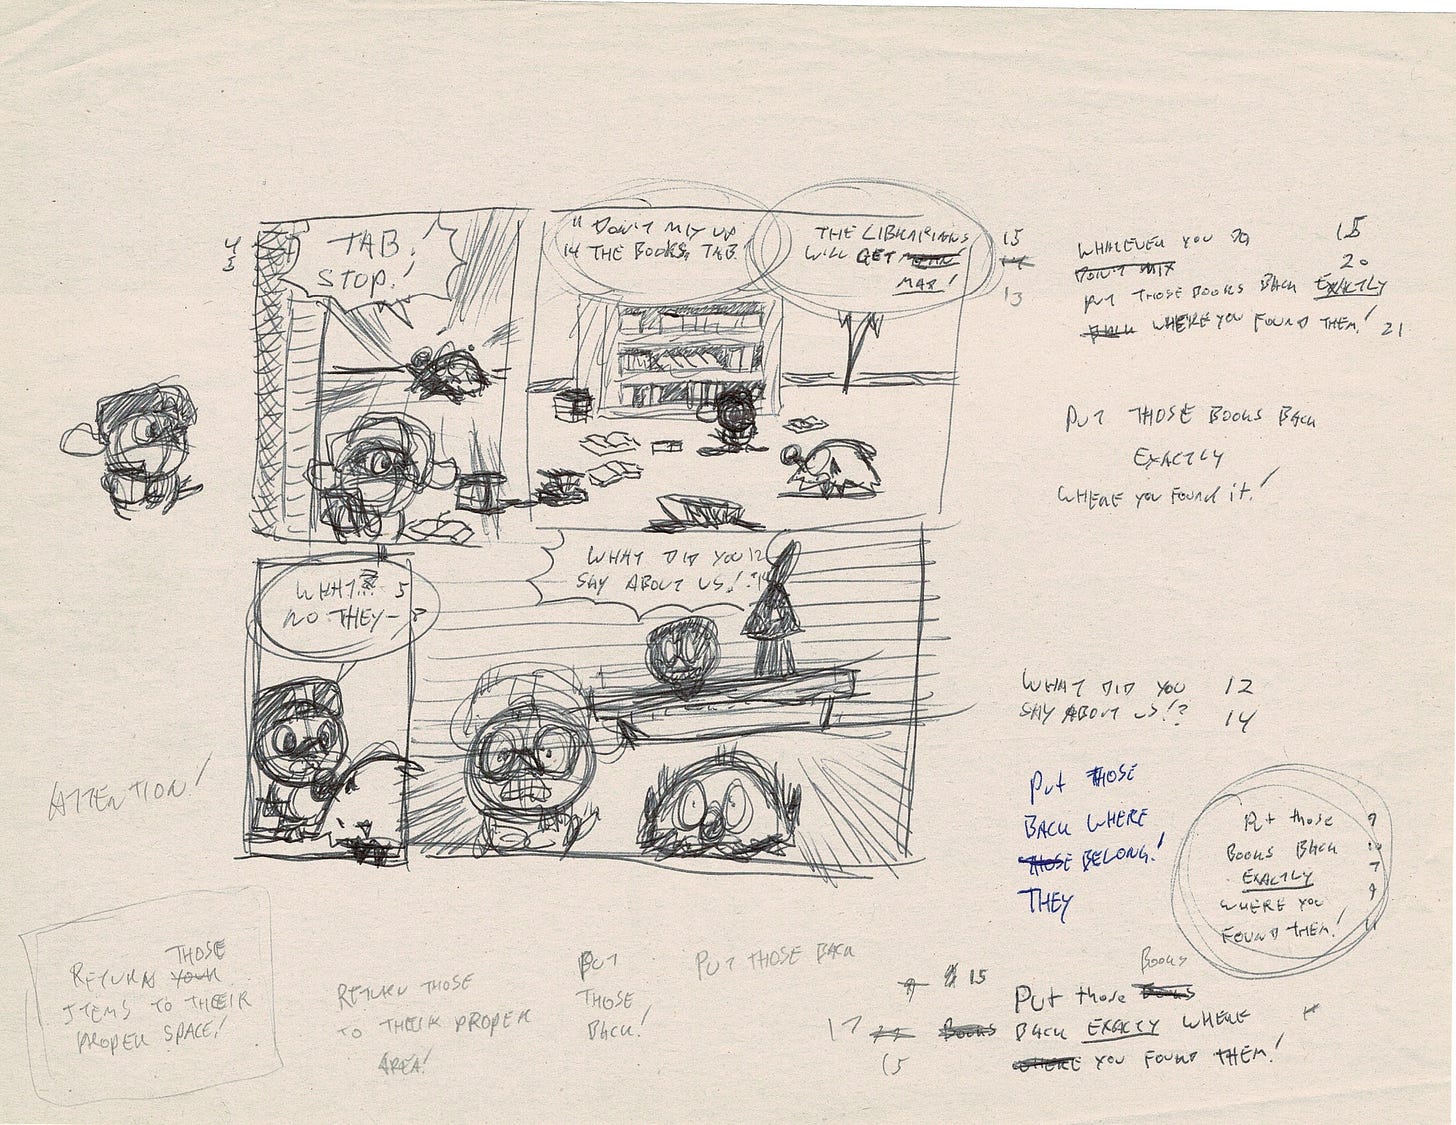 TAB!
STOP!
4
5
"DON'T MIX UP
14 THE BOOKS, TAB!
THE LIBRARIANS
WILL GET
MAD!
15
13
WHATEVER YOU DO
DON'T MIX
PUT THOSE BOOKS BACK EXACTLY
BACK WHERE YOU FOUND THEM! 21
15
20
PUT THOSE BOOKS BACK
EXACTLY
WHERE YOU FOUND IT!
WHAT?? 5
NO THEY-
WHAT DID YOU 12
SAY ABOUT US!?
WHAT DID YOU 12
SAY ABOUT US!? 14
ATTENTION!
PUT THOSE
BACK WHERE
THOSE BELONG!
THEY
Put those 9
BOOKS BACK 10
EXACTLY 7
WHERE YOU 9
FOUND THEM! 11
THOSE
RETURN YOUR
ITEMS TO THEIR
PROPER SPACE!
RETURN THOSE
TO THEIR PROPER
AREA!
PUT
THOSE
BACK!
PUT THOSE BACK
BOOKS
15
Put those BOOKS
17 BOOKS BACK EXACTLY WHERE
15 WHERE YOU FOUND THEM!